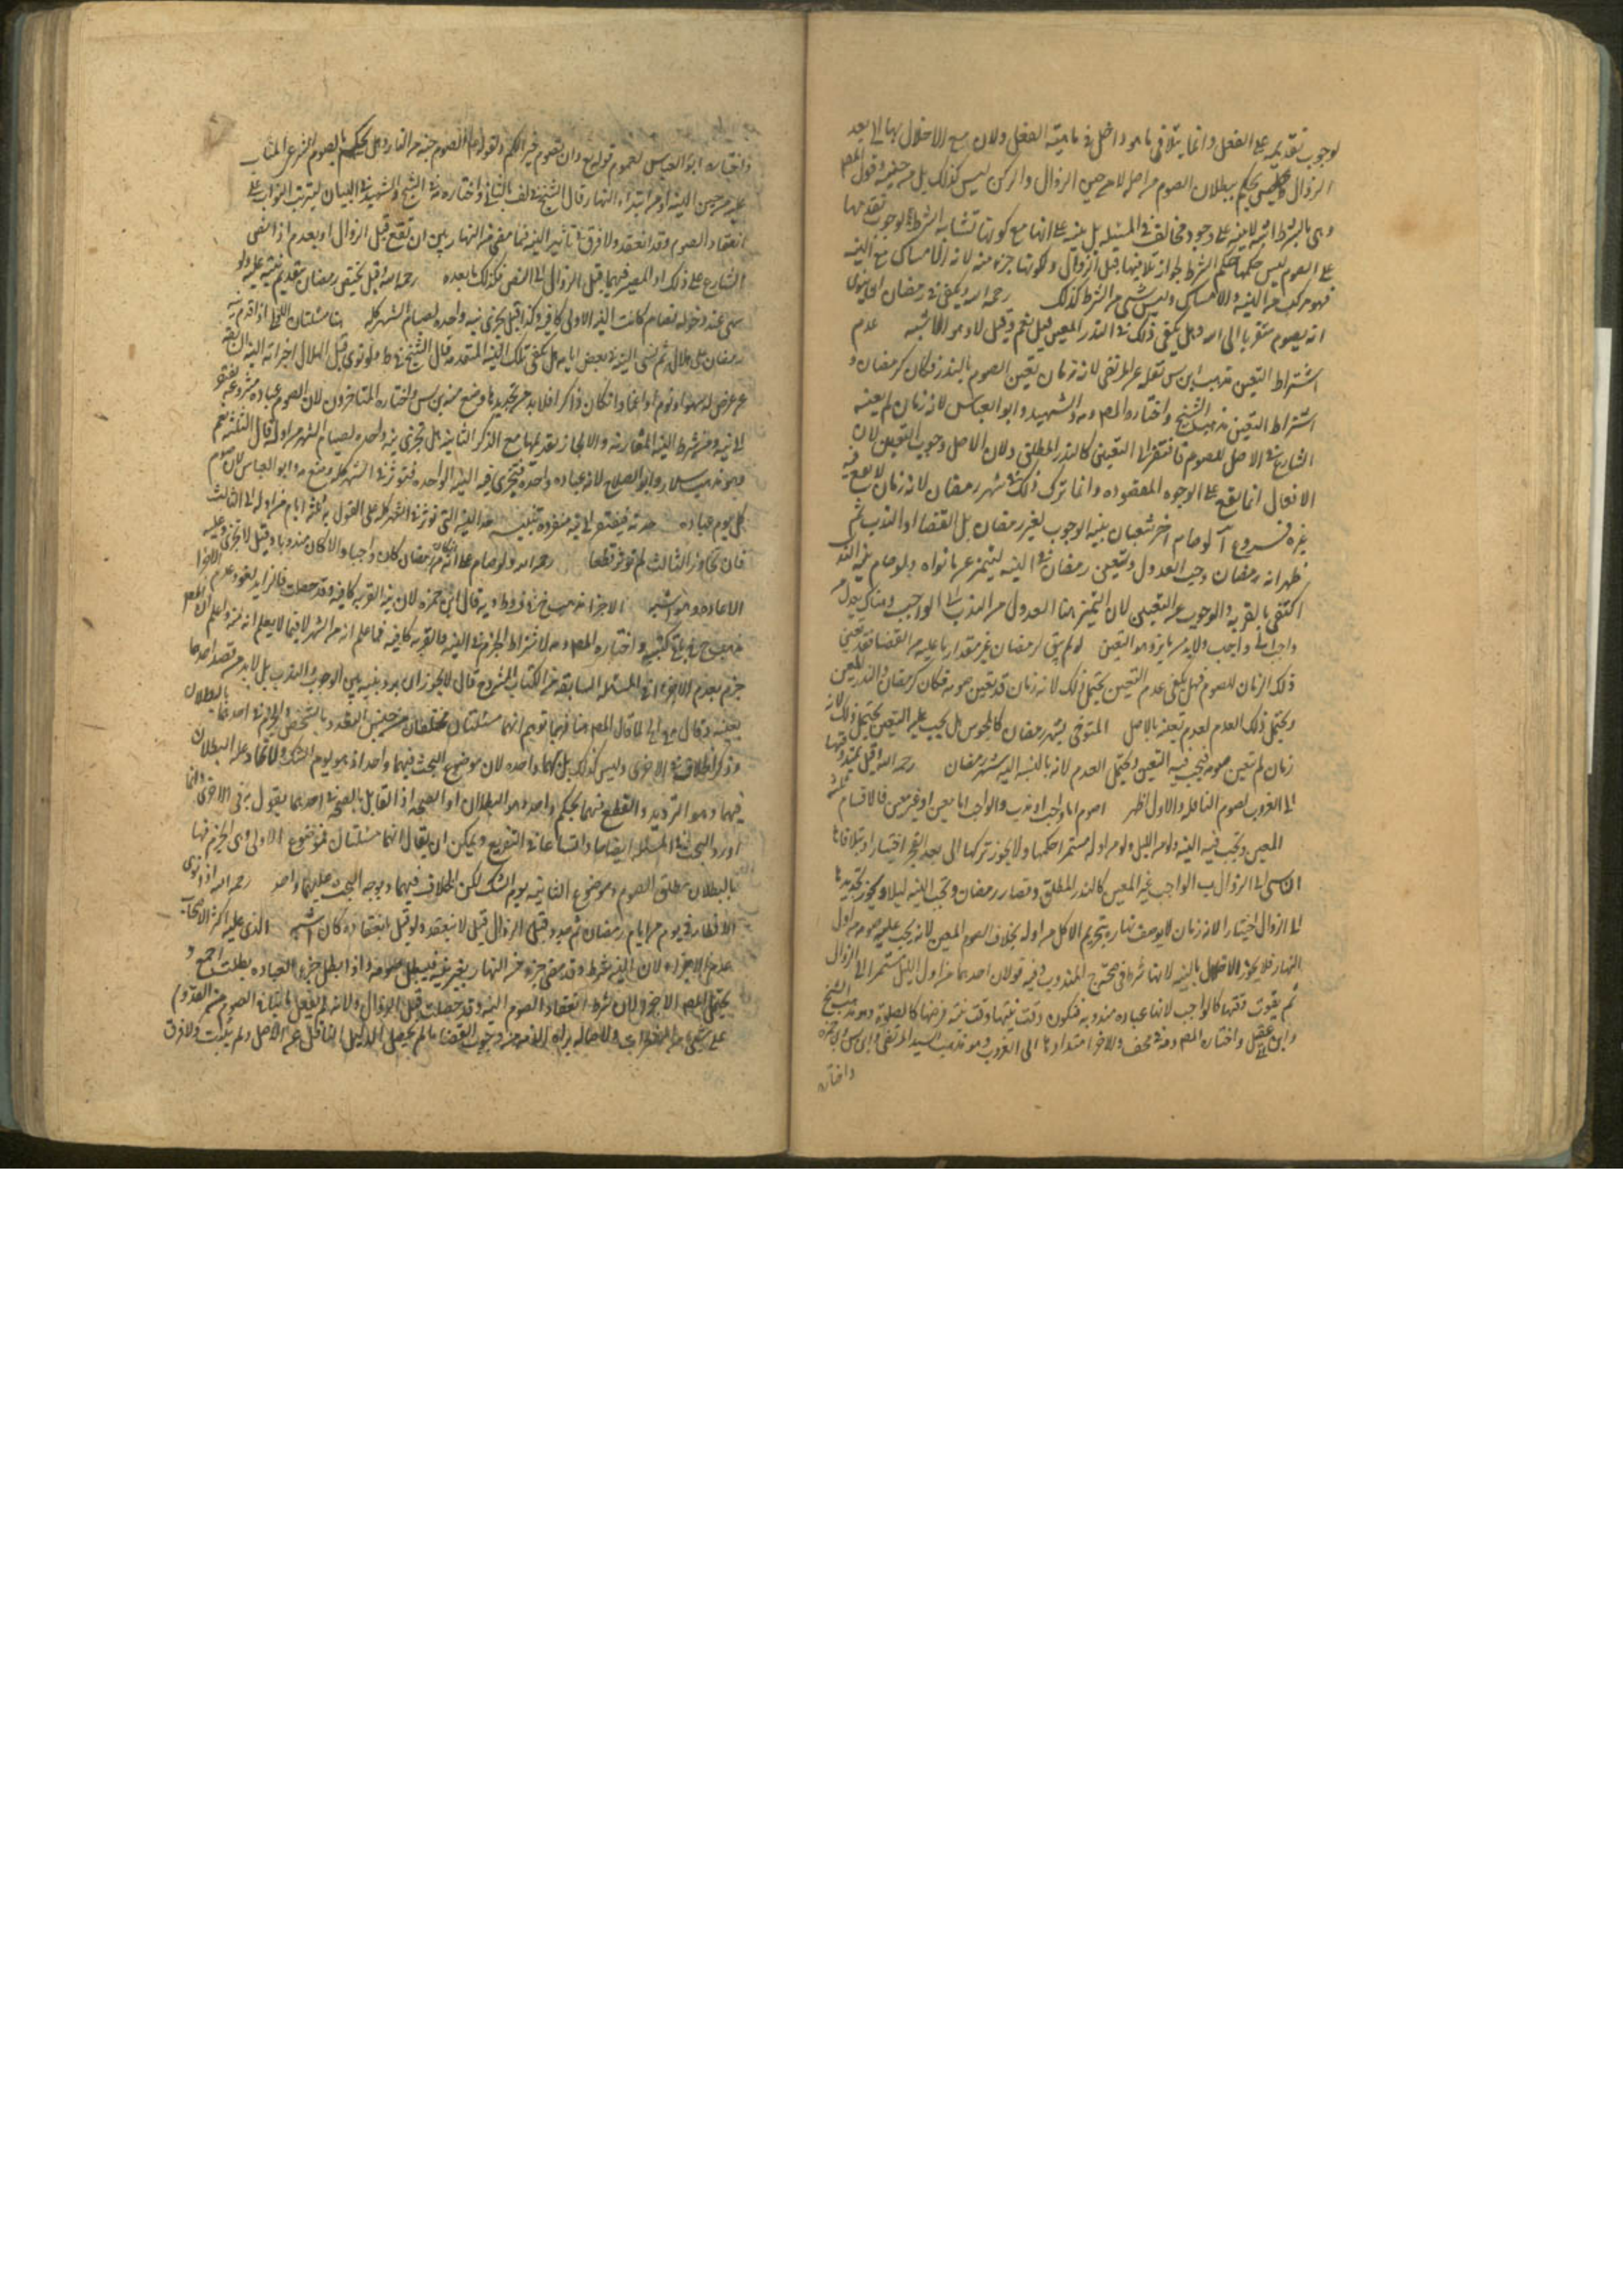 لوجوب تقديمه على الفعل وانما يتلافى ما هو داخل في ماهية الفعل ولان مع الاخلال بها الى بعد
الزوال يحكم ببطلان الصوم من اصله لا من حين الزوال والركن ليس كذلك بل من حينه وقول المص
وهي بالشرط اشبه لا ينبه على وجود مخالف في المسئله بل ينبه على انها مع كونها تشابه الشرط لوجوب تقدمها
على الصوم ليس حكمها حكم الشرط لجواز تلافيها قبل الزوال ولكونها جزء منه لانه الامساك مع النيه
فهو مركب من النيه والامساك وليس شيء من الشرط كذلك رحمه الله ويكفي في رمضان ان ينوي
انه يصوم متقربا الى الله وهل يكفي ذلك في النذر المعين قيل نعم وقيل لا وهو الاشبه عدم
اشتراط التعيين مذهب ابن س نقله عن المرتضى لانه زمان تعين الصوم بالنذر فكان كرمضان و
اشتراط التعيين مذهب الشيخ واختاره المص والشهيد وابو العباس لانه زمان لم يعينه
الشارع في الاصل للصوم فافتقر الى التعيين كالنذر المطلق ولان الاصل وجوب التعيين لان
الافعال انما يقع على الوجوه المقصوده وانما ترك ذلك في شهر رمضان لانه زمان لا يقع فيه
غيره فروع آ لو صام اخر شعبان بنيه الوجوب لغير رمضان بل القضا او النذر ثم
ظهر انه رمضان وجب العدول وتعين رمضان في النيه ليتميز عن ما نواه ولو صام بنيه الندب
اكتفى بالقربه والوجوب عن التعيين لان التميز هنا العدول من الندب الى الواجب وهناك يعدل من
واجب الى واجب ولا بد من مايز وهو التعيين لو لم يبق لرمضان غير مقدار ما عليه من القضا فقد تعين
ذلك الزمان للصوم فهل يكفي عدم التعيين يحتمل ذلك لانه زمان قد تعين صومه فكان كرمضان والنذر المعين
ويحتمل ذلك العدم لعدم تعينه بالاصل المتوخى لشهر رمضان كالمحبوس هل يجب عليه التعيين يحتمل ذلك لانه
زمان لم تعين صومه فيجب فيه التعيين ويحتمل العدم لانه بالنسبه اليه شهر رمضان رحمه الله وقيل يمتد وقتها
الى الغروب لصوم النافله والاول اظهر الصوم اما واجب او ندب والواجب اما معين او غير معين فالاقسام ثلثه
المعين وتجب فيه النيه ولو من الليل ولو من اوله مستمرا حكمها ولا يجوز تركها الى بعد الفجر اختيارا ويتلافاها
الناسي الى الزوال ب الواجب غير المعين كالنذر المطلق وقضاء رمضان وتجب النيه ليلا ويجوز تجديدها
الى الزوال اختيارا لانه زمان لا يوصف نهاره بتحريم الاكل من اوله بخلاف الصوم المعين لانه يجب عليه صومه من اول
النهار فلا يجوز الاخلال بالنيه لانها شرط في صحته ج المندوب وفيه قولان احدهما من اول الليل مستمرا الى الزوال
ثم يفوت وقتها كالواجب لانها عباده مندوبه فتكون وقت نيتها وقت نيه فرضها كالصلوة وهو مذهب الشيخ
وابن ابي عقيل واختاره المص والاخر امتدادها الى الغروب وهو مذهب السيد المرتضى وابن س وابن حمزه
واختاره
واختاره ابو العباس لعموم قوله تع وان تصوموا خير لكم ولقوله الصوم جنه من النار وهل يحكم بالصوم الشرعي المثاب
عليه من حين النيه او من ابتداء النهار قال الشيخ في الخلاف بالثاني واختاره الشهيد في البيان ليترتب الثواب على
انعقاد الصوم وقد انعقد ولا فرق في تأثير النيه فيما مضى من النهار بين ان تقع قبل الزوال او بعده اذا نص
الشارع على ذلك اذ المصير فيما قبل الزوال الى النص فكذلك ما بعده رحمه الله وقيل يختص رمضان بتقديم نيته عليه ولو
سهى عند دخوله فصام كانت النيه الاولى كافيه وكذا قيل يجزي نيه واحده لصيام الشهر كله هنا مسئلتان اذا قدم نيه
رمضان على هلاله ثم نسي النيه في بعض ايامه هل يكفي تلك النيه المتقدمه قال الشيخ في ط ولو نوى قبل الهلال اجزاته النيه ان
عرض له سهو او نوم او اغما وان كان ذاكرا فلا بد من تجديدها ومنع منه ابن س واختاره المتاخرون لان الصوم عباده مشروعه يفتقر
الى نيه ومن شرط النيه المقارنه والا لجاز تقديمها مع الذكر الثانيه هل تجزي نيه واحده لصيام الشهر من اوله قال الثلثه نعم
وهو مذهب سلار وابو الصلاح لانه عباده واحدة فتجزي فيه النيه الواحده فتؤثر في الشهر كله ومنع وابو العباس لان صوم
كل يوم عباده مفرده فيفتقر الى نيه منفرده تنبيه هذه النيه التي تؤثر في الشهر كله على القول بثلثة ايام من اوله الى الثالث
فان تجاوز الثالث لم تؤثر قطعا رحمه الله ولو صام على انه ان كان من رمضان كان واجبا والا كان مندوبا وقيل لا يجزي وعليه
الاعاده وهو الاشبه الاجزاء مذهب الشيخ في ط وبه قال ابن حمزه لان نيه القربه كافيه وقد حصلت فالزايد لغو وعدم الاجزا
مذهبه في باقي كتبه واختاره المص لاشتراط الجزم في النيه فالقربه كافيه فيما علم انه من الشهر لا فيما لا يعلم انه منه واعلم ان المص
جزم بعدم الاجزاء في المسئله السابقه من الكتاب المشروح قال لا يجوز ان يردد نيته بين الوجوب والندب بل لا بد من قصد احدهما
بعينه وقال هنا فربما توهم انهما مسئلتان مختلفتان من حيث التعدد بالشخص والجزم في احدهما بالبطلان
وذكر الخلاف في الاخرى وليس كذلك بل هما واحده لان موضوع البحث فيهما واحد اذ هو يوم الشك واتحاد عله البطلان
فيهما وهو الترديد والقطع فيهما بحكم واحد وهو البطلان او الصحه اذ القائل بالصحه في احدهما يقول به في الاخرى وانما
اورد البحث في المسئله ايضاحا واتساعا في التفريع ويمكن ان يقال انهما مسئلتان فموضوع الاولى وهي الجزم فيها
بالبطلان مطلق الصوم وموضوع الثانيه يوم الشك لكن الخلاف فيهما ووجه البحث عليهما واحد رحمه الله اذا نوى
الافطار في يوم من ايام رمضان ثم جدد قبل الزوال قيل لا ينعقد ولو قيل بانعقاده كان اشبه الذي عليه اكثر الاصحاب
عدم الاجزاء لان النيه شرط وقد مضى جزء من النهار بغير نيه فيبطل صومه واذا بطل جزء العباده بطلت اجمع و
يحتمل المص الاجزاء لان شرط انعقاد الصوم النيه وقد حصلت قبل الزوال ولانه لم يفعل ما ينافي الصوم
على شيء من المفطرات ولاصاله براة الذمه من وجوب القضا ما لم يحصل الدليل الناقل عن الاصل ولم يثبت ولا فرق